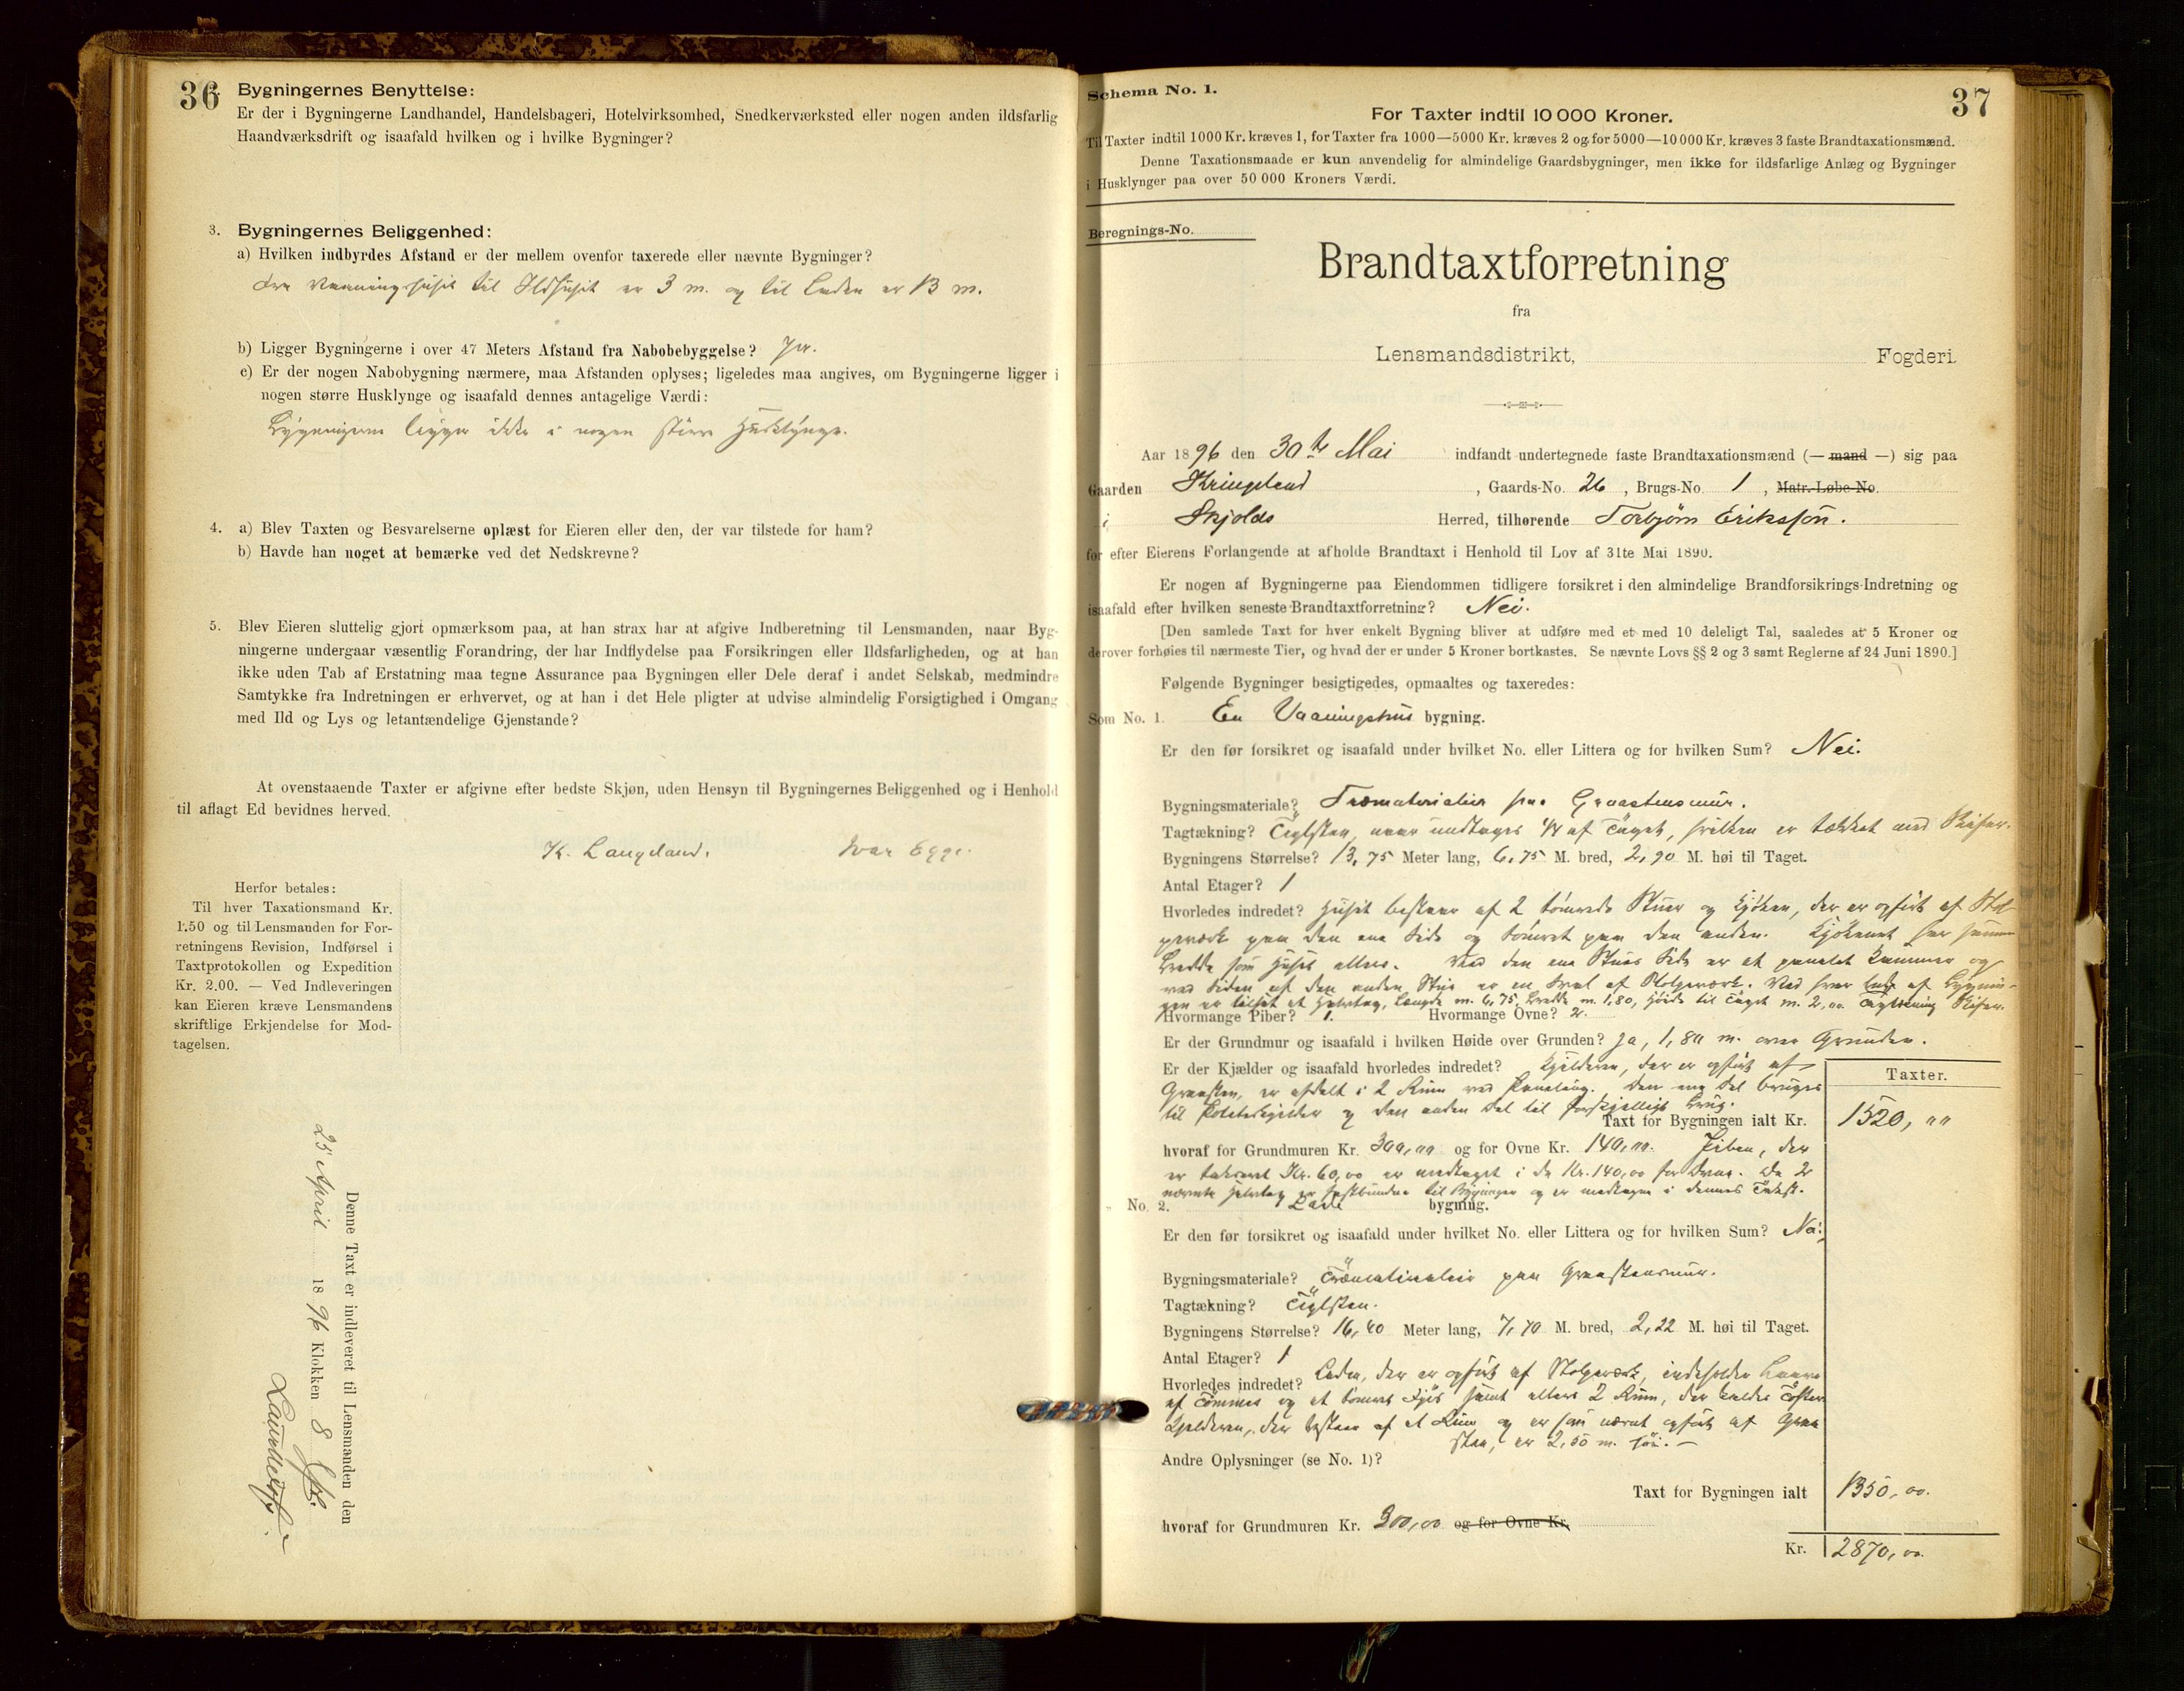 36
Bygningernes Benyttelse:
Er der i Bygningerne Landhandel, Handelsbageri, Hotelvirksomhed, Snedkerværksted eller nogen anden ildsfarlig
Haandværksdrift og isaafald hvilken og i hvilke Bygninger?
3. Bygningernes Beliggenhed:
a) Hvilken indbyrdes Afstand er der mellem ovenfor taxerede eller nævnte Bygninger?
Fra Vaaningshuset til Ildhuset er 3 m. og til Laden er 13 m.
b) Ligger Bygningerne i over 47 Meters Afstand fra Nabobebyggelse? Ja.
c) Er der nogen Nabobygning nærmere, maa Afstanden oplyses; ligeledes maa angives, om Bygningerne ligger i
nogen større Husklynge og isaafald dennes antagelige Værdi:
Bygningerne ligger ikke i nogen större Husklynge.
4. a) Blev Taxten og Besvarelserne oplæst for Eieren eller den, der var tilstede for ham?
b) Havde han noget at bemærke ved det Nedskrevne?
5. Blev Eieren sluttelig gjort opmærksom paa, at han strax har at afgive Indberetning til Lensmanden, naar Byg-
ningerne undergaar væsentlig Forandring, der har Indflydelse paa Forsikringen eller Ildsfarligheden, og at han
ikke uden Tab af Erstatning maa tegne Assurance paa Bygningen eller Dele deraf i andet Selskab, medmindre
Samtykke fra Indretningen er erhvervet, og at han i det Hele pligter at udvise almindelig Forsigtighed i Omgang
med Ild og Lys og letantændelige Gjenstande?
At ovenstaaende Taxter er afgivne efter bedste Skjøn, uden Hensyn til Bygningernes Beliggenhed og i Henhold
til aflagt Ed bevidnes herved.
K. Langeland. Ivar Egge.
Herfor betales:
Til hver Taxationsmand Kr.
1.50 og til Lensmanden for For-
retningens Revision, Indførsel i
Taxtprotokollen og Expedition
Kr. 2.00. — Ved Indleveringen
kan Eieren kræve Lensmandens
skriftlige Erkjendelse for Mod-
tagelsen.
Denne Taxt er indleveret til Lensmanden den
25 April 1896 Klokken 8
37
Schema No. 1.
For Taxter indtil 10 000 Kroner.
Til Taxter indtil 1000 Kr. kræves 1, for Taxter fra 1000—5000 Kr. kræves 2 og for 5000—10 000 Kr. kræves 3 faste Brandtaxationsmænd.
Denne Taxationsmaade er kun anvendelig for almindelige Gaardsbygninger, men ikke for ildsfarlige Anlæg og Bygninger
i Husklynger paa over 50 000 Kroners Værdi.
Beregnings-No.
Brandtaxtforretning
fra
Lensmandsdistrikt, Fogderi.
Aar 1896 den 30te Mai indfandt undertegnede faste Brandtaxationsmænd (— mand —) sig paa
Gaarden Kringeland, Gaards-No. 26, Brugs-No. 1, Matr.-Løbe-No.
i Skjolds Herred, tilhørende Torbjörn Eriksson.
for efter Eierens Forlangende at afholde Brandtaxt i Henhold til Lov af 31te Mai 1890.
Er nogen af Bygningerne paa Eiendommen tidligere forsikret i den almindelige Brandforsikrings-Indretning og
isaafald efter hvilken seneste Brandtaxtforretning? Nei.
[Den samlede Taxt for hver enkelt Bygning bliver at udføre med et med 10 deleligt Tal, saaledes at 5 Kroner og
derover forhøies til nærmeste Tier, og hvad der er under 5 Kroner bortkastes. Se nævnte Lovs §§ 2 og 3 samt Reglerne af 24 Juni 1890.]
Følgende Bygninger besigtigedes, opmaaltes og taxeredes:
Som No. 1. En Vaaningshus bygning.
Er den før forsikret og isaafald under hvilket No. eller Littera og for hvilken Sum? Nei.
Bygningsmateriale? Træmaterialier paa Graastensmur.
Tagtækning? Tæglsten, naar undtages 1/4 af Taget, hvilken er tækket med Skifer.
Bygningens Størrelse? 13,75 Meter lang, 6,75 M. bred, 2,90 M. høi til Taget.
Antal Etager? 1
Hvorledes indredet? Huset bestaar af 2 tömrede Stuer og Kjöken, der er opfört af Stol-
perværk paa den ene Side og tömret paa den anden. Kjökenet har samme
Bredde som Huset ellers. Ved den ene Stues Side er et panelet Kammer og
ved Siden af den anden Stue er en Sval af Stolperværk. Ved hver Ende af Bygnin-
gen er tilsat et Halvtag, Længde m. 6,75, Bredde m. 1,80, Höide til Taget m. 2,00. Tagtækning Skifer.
Hvormange Piber? 1. Hvormange Ovne? 2.
Er der Grundmur og isaafald i hvilken Høide over Grunden? Ja, 1,80 m. over Grunden.
Er der Kjælder og isaafald hvorledes indredet? Kjelderen, der er opfört af
Graasten, er afdelt i 2 Rum ved Paneling. Den ene Del bruges
til Potetkjelder og den anden Del til forskjelligt Brug.
Taxter.
Taxt for Bygningen ialt Kr. 1520,00
hvoraf for Grundmuren Kr. 300,00 og for Ovne Kr. 140,00. Piben, der
er takseret Kr. 60,00 er medtaget i de Kr. 140,00 for Ovne. De 2
nævnte Halvtag er fastbundne til Bygningen og er medtagne i dennes Takst.
" No. 2. Lade bygning.
Er den før forsikret og isaafald under hvilket No. eller Littera og for hvilken Sum? Nei.
Bygningsmateriale? Træmaterialier paa Graastensmur.
Tagtækning? Tæglsten.
Bygningens Størrelse? 16,40 Meter lang, 7,70 M. bred, 2,22 M. høi til Taget.
Antal Etager? 1
Hvorledes indredet? Laden, der er opfört af Stolperværk, indeholder Laave
af Tömmer og et tömret Fjös samt ellers 2 Rum, der kaldes
Kjelderen, der bestaar af et Rum og er som nævnt opfört af Graa
sten, er 2,50 m. höi. —
Andre Oplysninger (se No. 1)?
Taxt for Bygningen ialt 1350,00.
hvoraf for Grundmuren Kr. 300,00 og for Ovne Kr.
Kr. 2870,00.